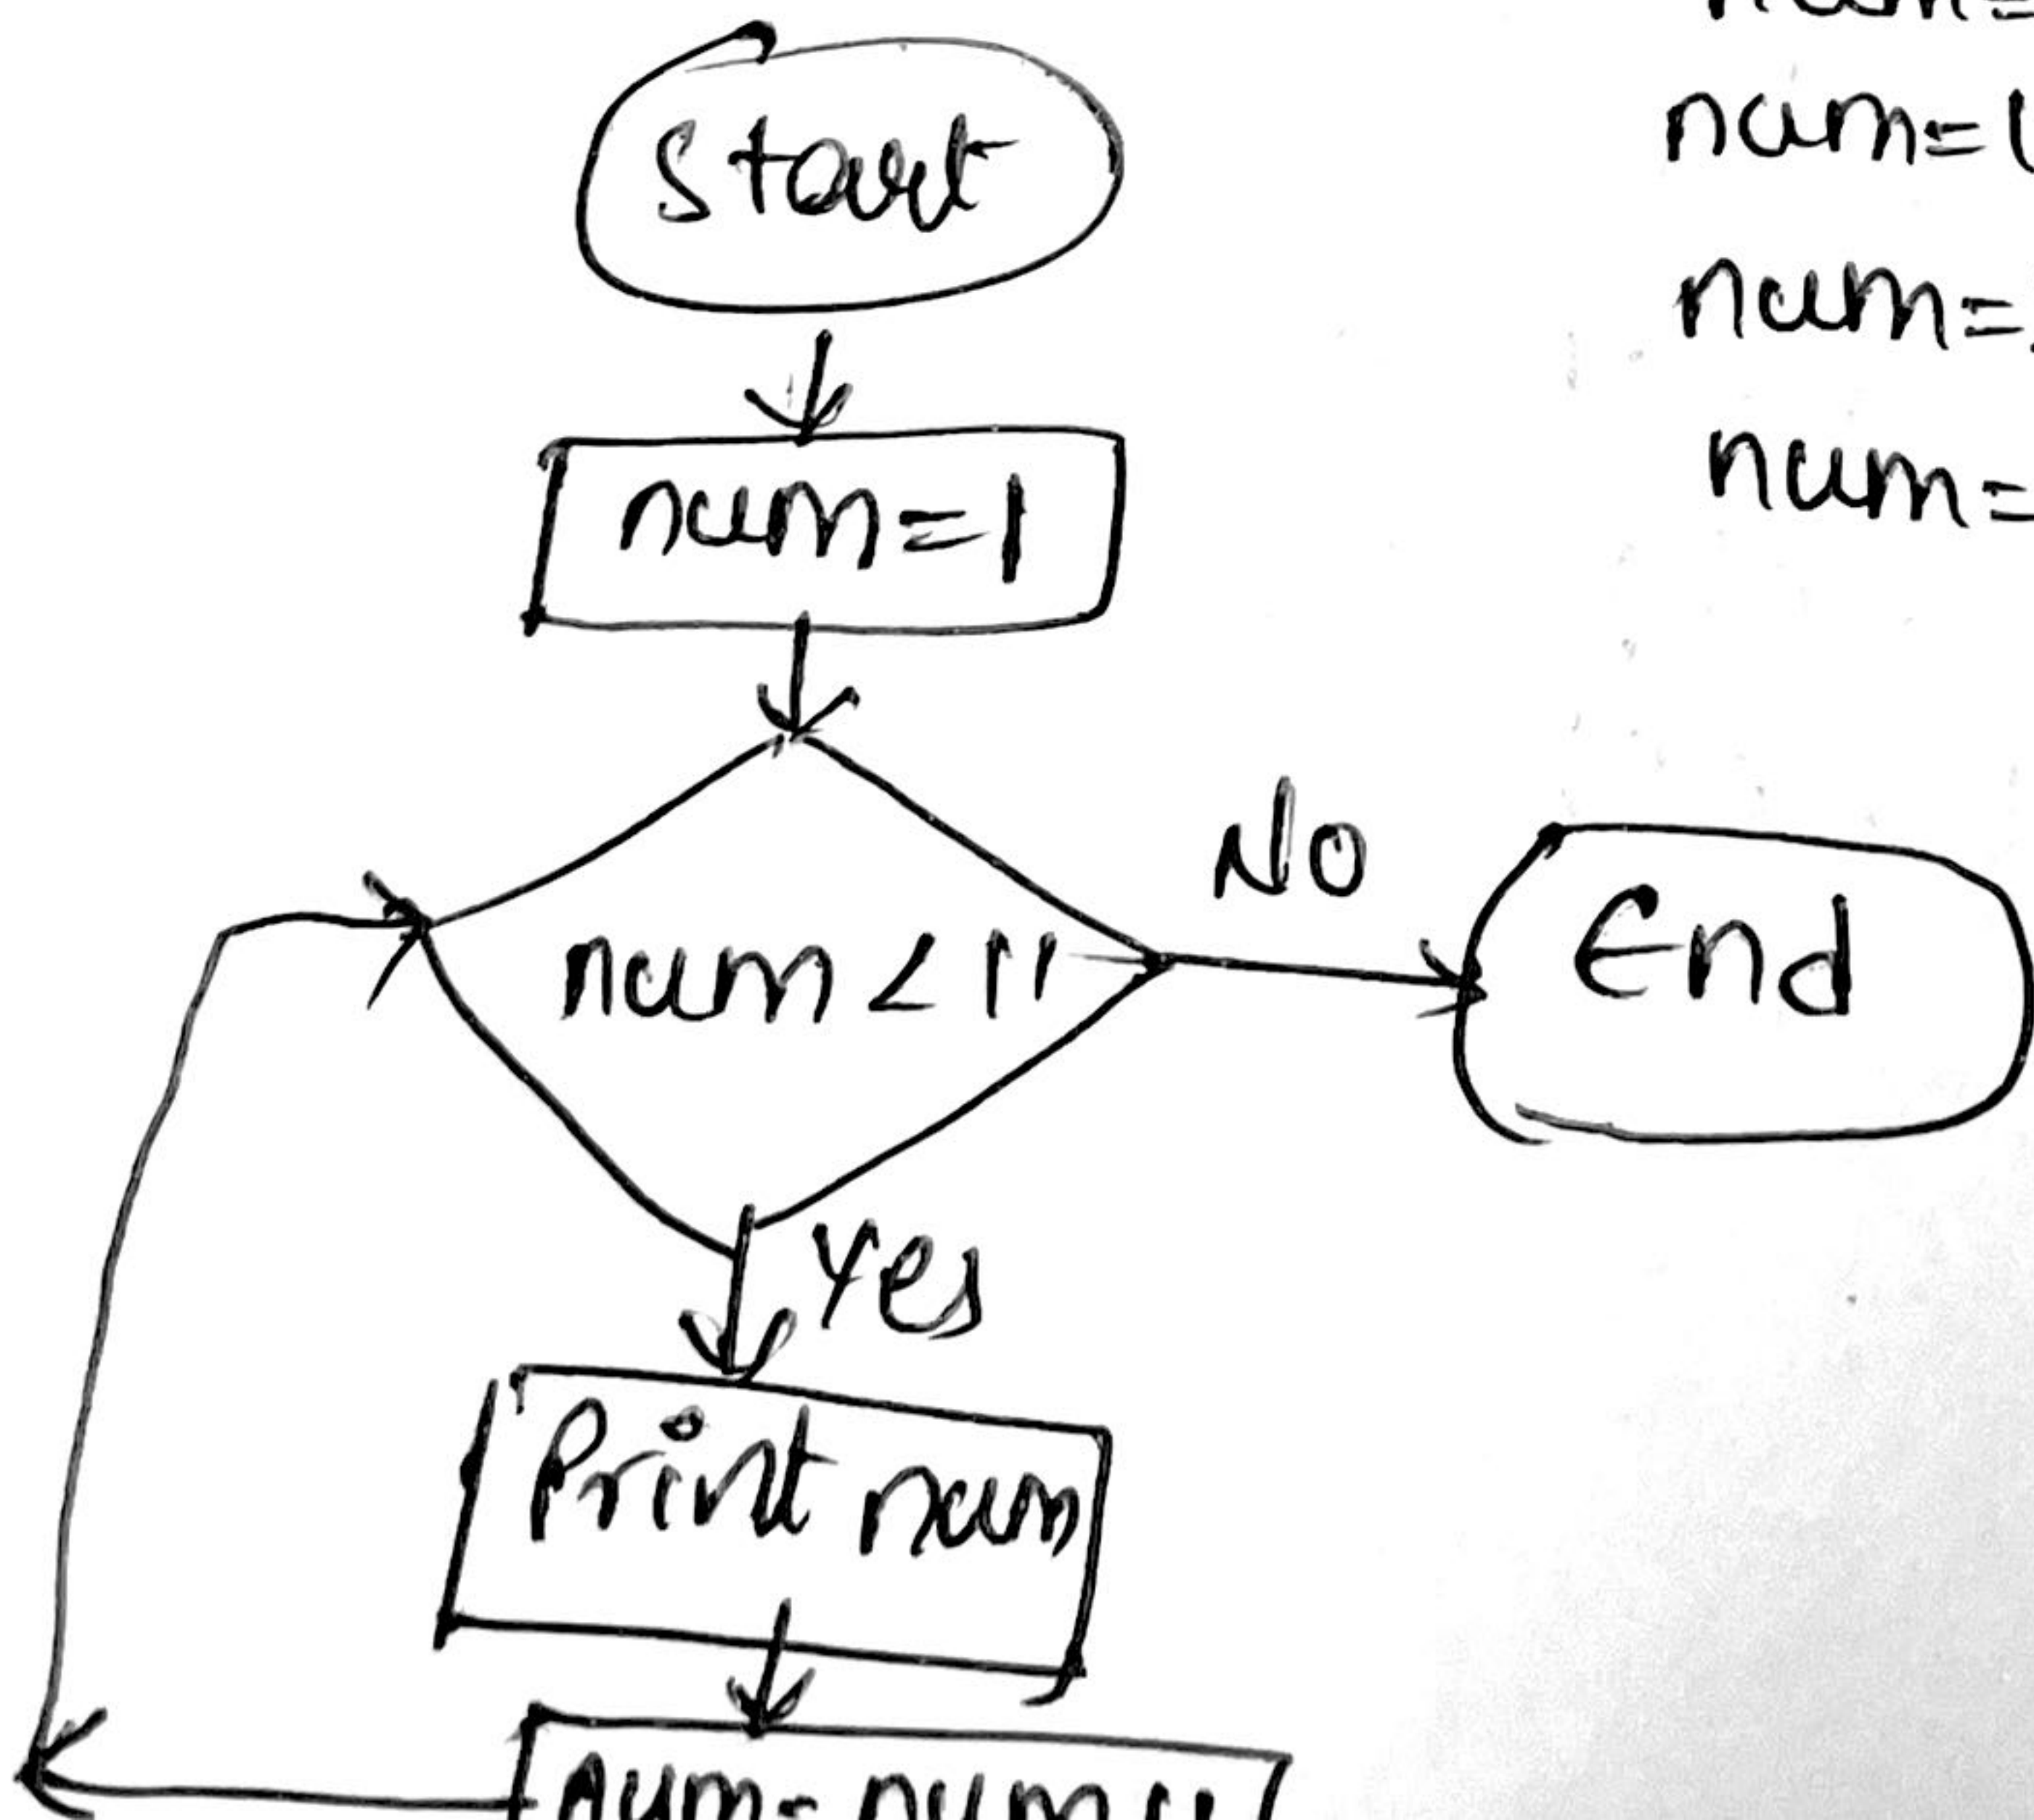 Start
num=1
num<11
No
End
Yes
Print num
num=
num=
num=
num=